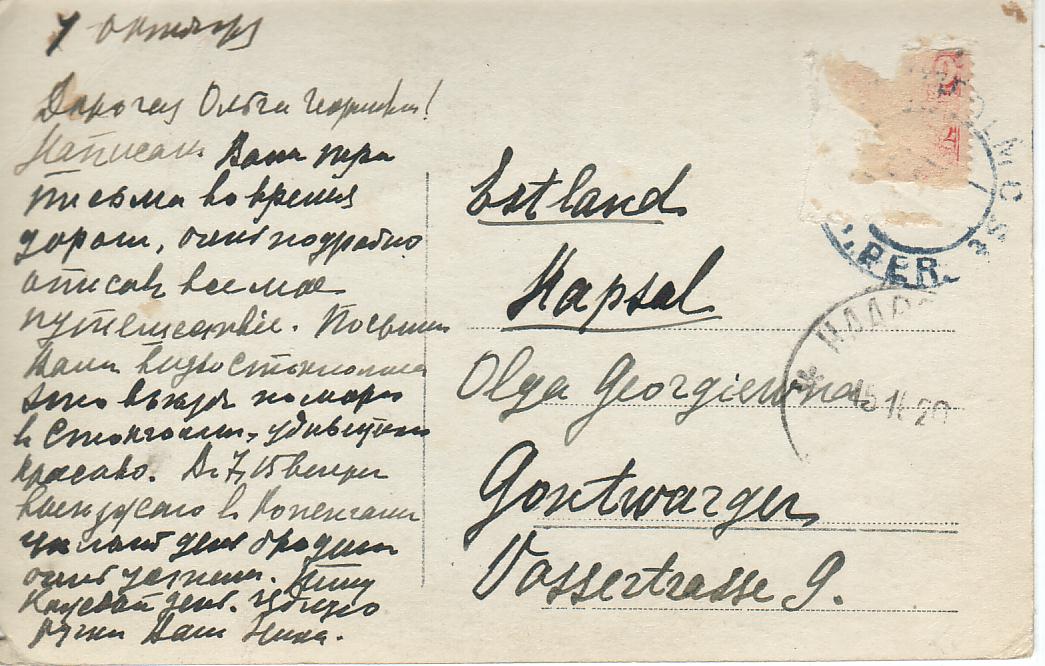 7 октября
Дорогая Ольга Георгиевна!
Написал Вам три
письма во время
дороги, очень подробно
описав все мое
путешествие. Посылаю
Вам виды Стокгольма
это въезд по морю
в Стокгольм, удивительно
красиво. В 7,15 вечера
выезжаю в Копенгаген
целый день бродили
очень устали. Пишу
каждый день. Целую
ручки Ваш Ника.
Estland
Hapsal
Olga Georgiewna
Gontwarger
Vossertrasse 9.
OLM C
PER.
HAAPS
15 11 20